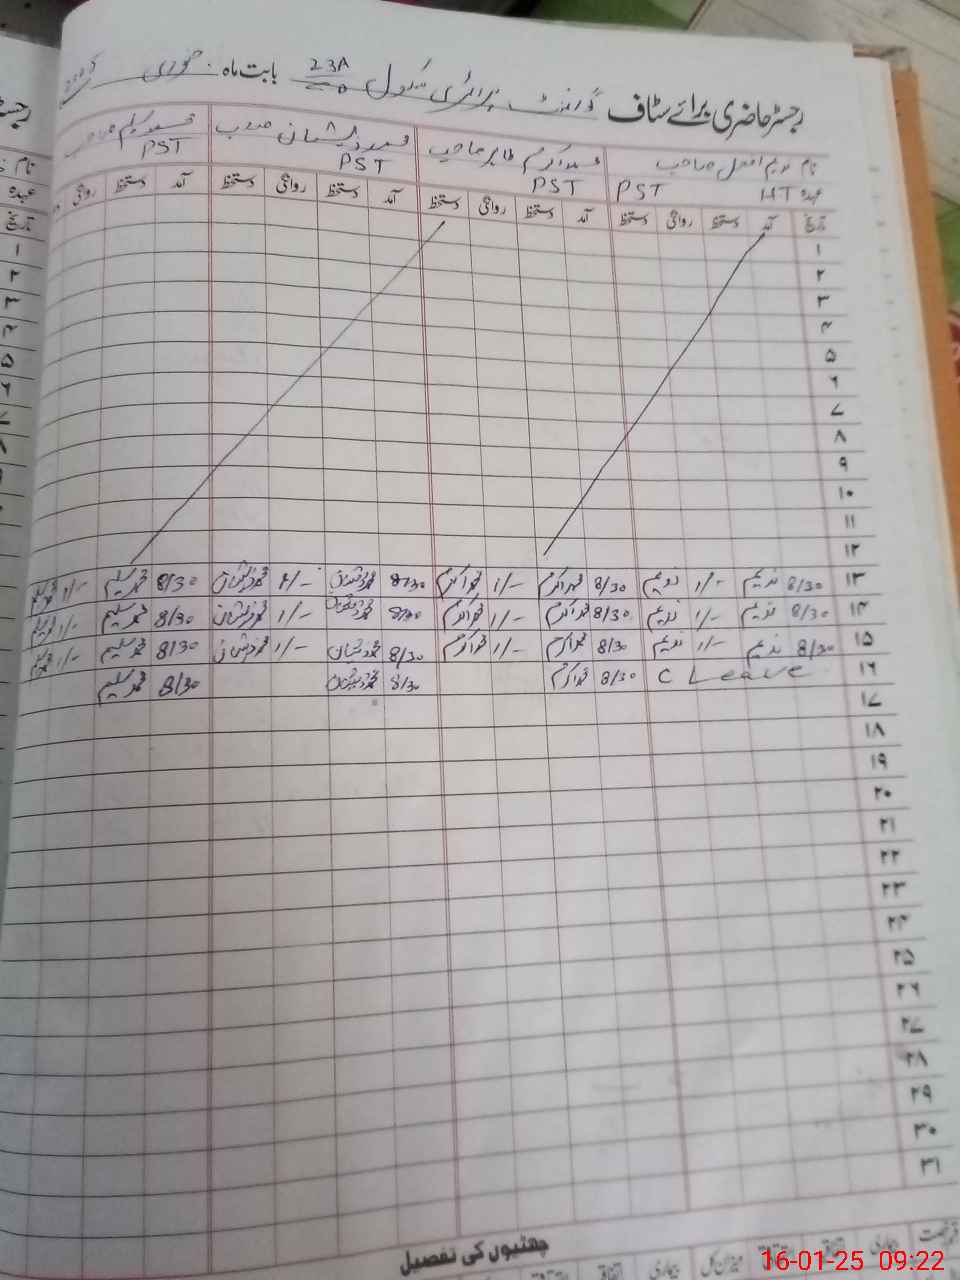 رجسٹر حاضری برائے سٹاف گورنمنٹ پرائمری سکول 23A بابت ماہ جنوری 2025
نام ندیم افضل صاحب محمد اکرم طاہر صاحب محمد ذیشان صاحب محمد سلیم صاحب
عہدہ HT PST PST PST PST
تاریخ آمد دستخط روانگی دستخط آمد دستخط روانگی دستخط آمد دستخط روانگی دستخط آمد دستخط روانگی
۱
۲
۳
۴
۵
۶
۷
۸
۹
۱۰
۱۱
۱۲
۱۳ 8/30 ندیم 1/- ندیم 8/30 محمد اکرم 1/- محمد اکرم 8/30 محمد ذیشان 1/- محمد ذیشان 8/30 محمد سلیم 1/- محمد سلیم
۱۴ 8/30 ندیم 1/- ندیم 8/30 محمد اکرم 1/- محمد اکرم 8/30 محمد ذیشان 1/- محمد ذیشان 8/30 محمد سلیم 1/- محمد سلیم
۱۵ 8/30 ندیم 1/- ندیم 8/30 محمد اکرم 1/- محمد اکرم 8/30 محمد ذیشان 1/- محمد ذیشان 8/30 محمد سلیم 1/- محمد سلیم
۱۶ C Leave 8/30 محمد اکرم 8/30 محمد ذیشان 8/30 محمد سلیم
۱۷
۱۸
۱۹
۲۰
۲۱
۲۲
۲۳
۲۴
۲۵
۲۶
۲۷
۲۸
۲۹
۳۰
۳۱
چھٹیوں کی تفصیل
بیماری اتفاقیہ میزان کل بیماری اتفاقیہ
16-01-25 09:22